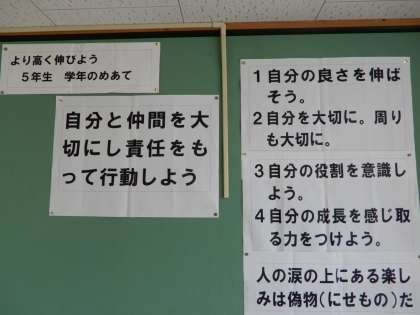 より高く伸びよう
5年生 学年のめあて
自分と仲間を大
切にし責任をも
って行動しよう
1自分の良さを伸ば
そう。
2自分を大切に。周り
も大切に。
3自分の役割を意識し
よう。
4自分の成長を感じ取
る力をつけよう。
人の涙の上にある楽し
みは偽物(にせもの)だ